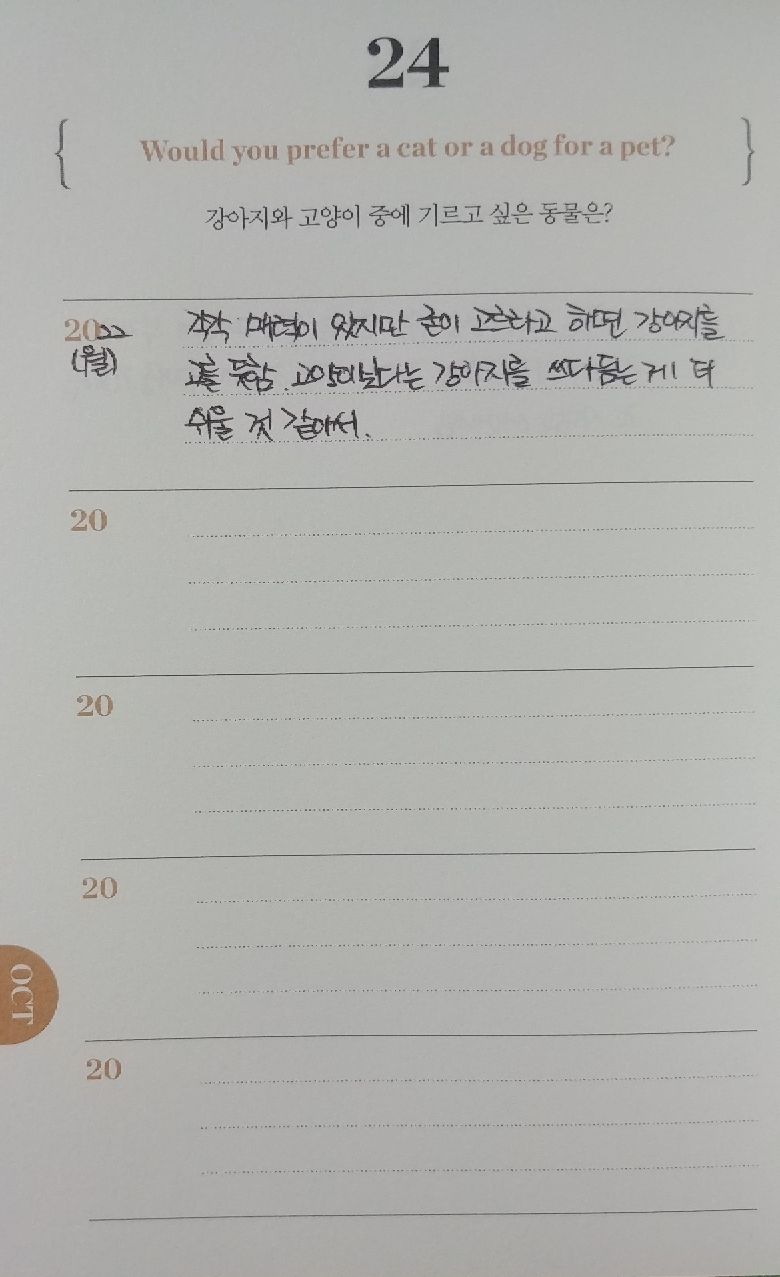 24
Would you prefer a cat or a dog for a pet?
강아지와 고양이 중에 기르고 싶은 동물은?
2022 각각 매력이 있지만 굳이 고르라고 하면 강아지를
(월) 고를 듯함. 고양이보다는 강아지를 쓰다듬는 게 더
쉬울 것 같아서.
20
20
20
OCT
20